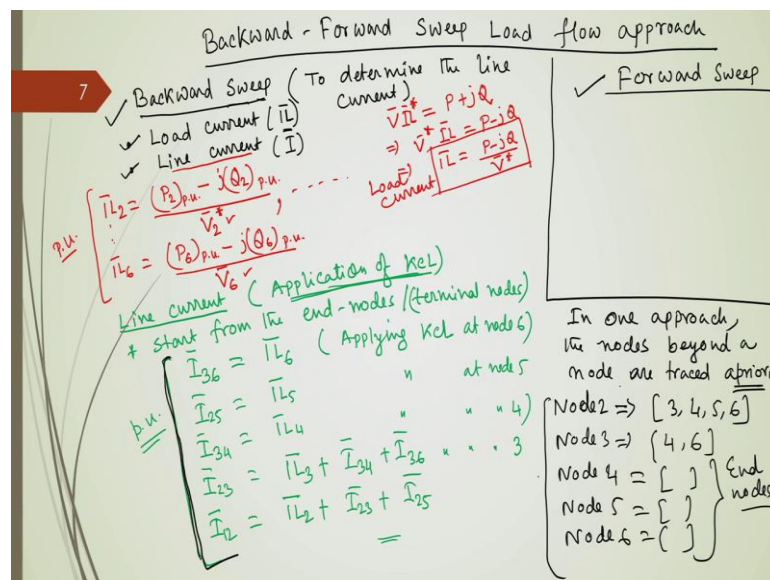 Backward - Forward Sweep Load flow approach
7
✓ Backward Sweep (To determine the line current)
✓ Load current (I̅L̅)
✓ Line current (I̅)
V̅ I̅L̅* = P+jQ
⇒ V̅* I̅L̅ = P-jQ
Load current ⇒ I̅L̅ = (P-jQ)/V̅*
p.u.
I̅L̅2 = ((P2)p.u. - j(Q2)p.u.)/V̅2* ✓ , .....
⋮
I̅L̅6 = ((P6)p.u. - j(Q6)p.u.)/V̅6 ✓
Line current (Application of KCL)
* start from the end-nodes/(terminal nodes)
p.u.
I̅36 = I̅L̅6 (Applying KCL at node 6)
I̅25 = I̅L̅5 " at node 5
I̅34 = I̅L̅4 " " " 4)
I̅23 = I̅L̅3 + I̅34 + I̅36 " " " 3
I̅12 = I̅L̅2 + I̅23 + I̅25
✓ Forward Sweep
In one approach,
the nodes beyond a
node are traced apriori
Node2 => [3,4,5,6]
Node 3 => [4,6]
Node 4 = [ ]
Node 5 = [ ]
Node 6 = [ ]
End nodes